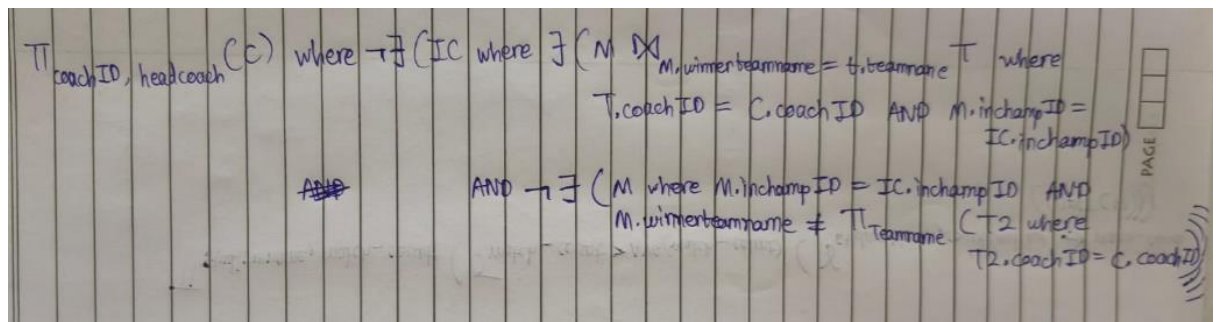 π coachID, headcoach (C) where ¬∃ (IC where ∃ (M ⋈ M.winnerteamname = t.teamname T where
T.coachID = C.coachID AND M.inchampID =
IC.inchampID)
AND ¬∃ (M where M.inchampID = IC.inchampID AND
M.winnerteamname ≠ π Teamname (T2 where
T2.coachID = C.coachID)))))
PAGE